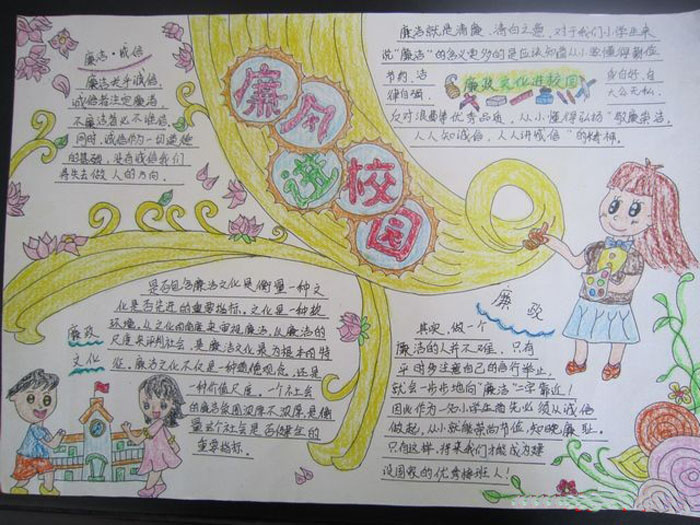 廉洁·诚信
廉洁关乎诚信,
诚信者决定廉洁,
不廉洁者必不诚信,
同时,诚信作为一切道德
的基础,丢弃诚信我们
将失去做人的方向.
廉风
进校园
廉洁就是清廉、清白之意,对于我们小学生来
说"廉洁"的含义更多的是应该知道从小要懂得勤俭
节约、洁
律自强、
廉政文化进校园
洁白好、自
大公无私、
反对浪费等优秀品质,从小懂得弘扬"敬廉崇洁,
人人知诚信,人人讲诚信"的精神。
廉政
文化
是否包含廉洁文化是衡量一种文
化是否先进的重要指标。文化是一种软
环境,从文化的角度来审视廉洁,从廉洁的
尺度来评判社会,是廉洁文化最为根本的特
征。廉洁文化不仅是一种道德观念,还是
一种价值尺度。一个社会
的廉洁氛围浓厚不浓厚是衡
量这个社会是否健全的
重要指标。
廉政
其实,做一个
廉洁的人并不难,只有
平时多注意自己的言行举止,
就会一步步地向"廉洁"二字靠近!
因此作为一名小学生首先必须从诚信
做起,从小就能崇尚节俭、知晓廉耻。
只有这样,将来我们才能成为建
设国家的优秀接班人!